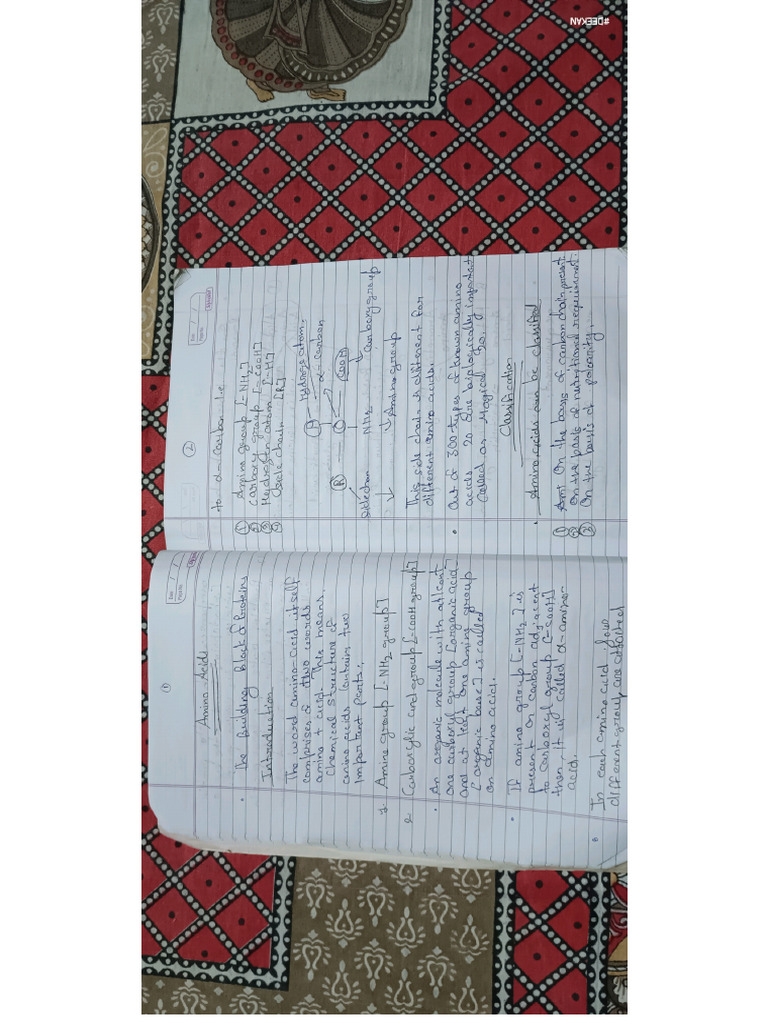 ①
Amino Acids
• The Building Block of Proteins
Introduction
The word amino-acid itself
comprises of two words
amino + acid. This means,
chemical structure of
amino acids contains two
important parts:
1 Amine group [-NH2 group]
2 Carboxylic acid group [-COOH group]
• An organic molecule with atleast
one carboxyl group [organic acid]
and at least one amine group
[organic base] is called
an amino acid.
• If amino group [-NH2] is
present on carbon adjacent
to carboxyl group [-COOH]
then, it is called α-amino-
acid.
• In each amino acid, four
different group are attached
②
to α-carbon i.e.
① Amine group [-NH2]
② Carboxy group [-COOH]
③ Hydrogen atom [-H]
④ Side chain [R]
Hydrogen atom.
H
α-carbon
R C COOH
NH2
Carboxy group
Amino group
This side chain is different for
different amino acids.
• Out of 300 types of known amino
acids 20 are biologically important
called as Magical 20.
Classification
• Amino acids can be classified
① On the basis of carbon chain present
② On the basis of nutritional requirement.
③ On the basis of polarity.
#DEEKAN